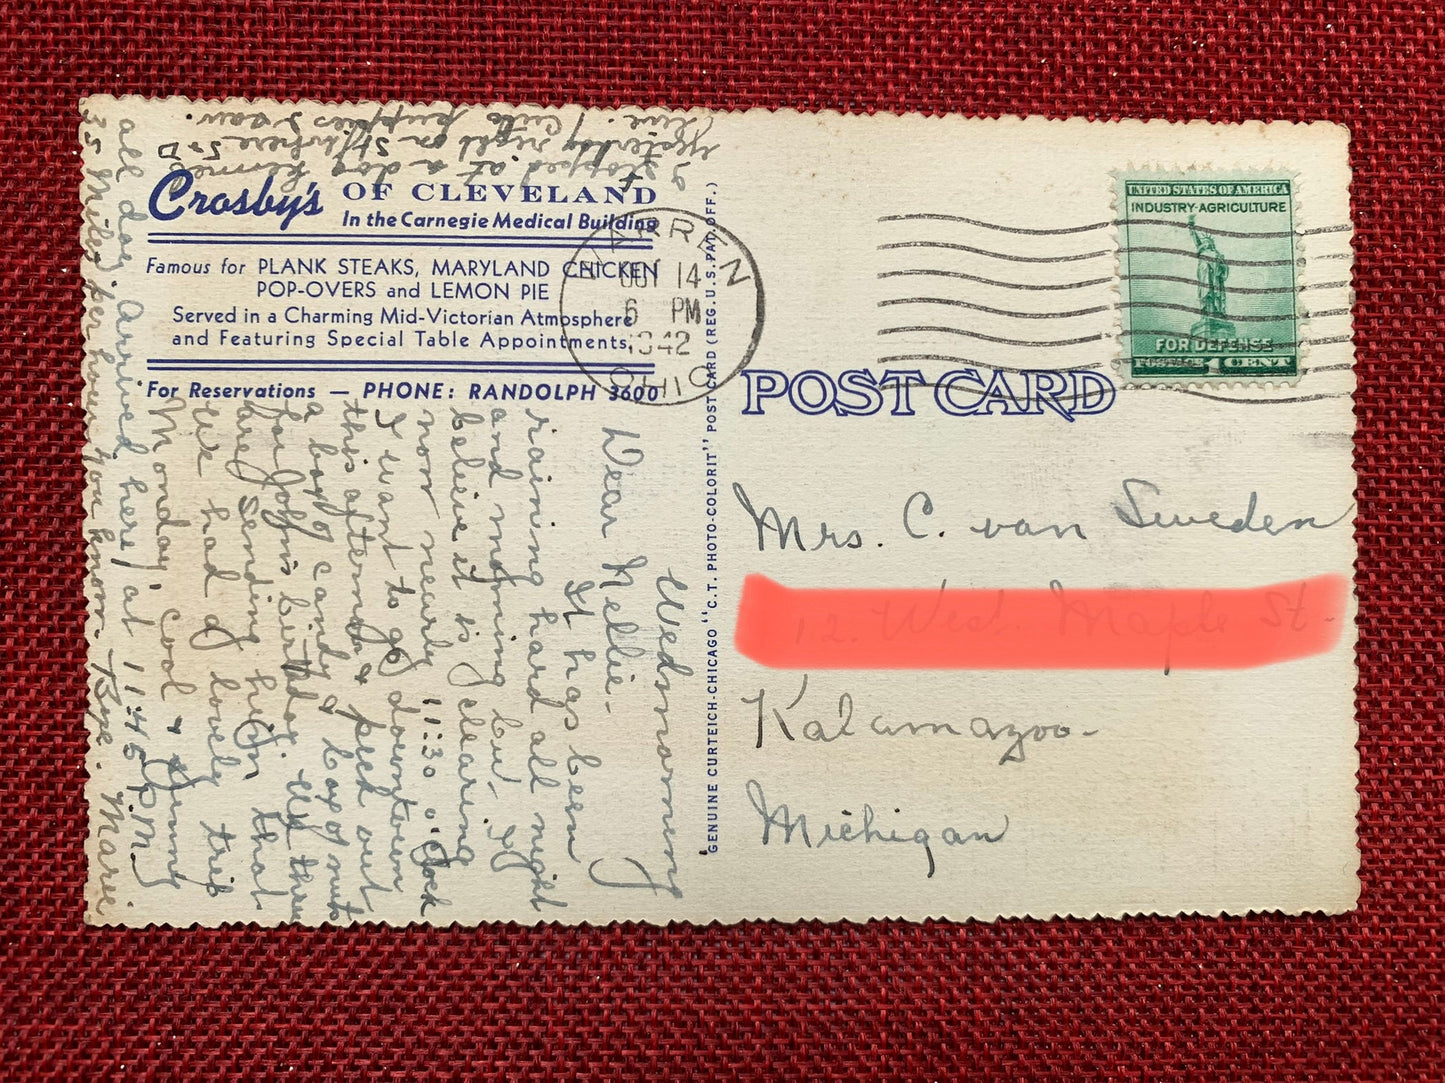 Crosby's OF CLEVELAND
In the Carnegie Medical Building
Famous for PLANK STEAKS, MARYLAND CHICKEN
POP-OVERS and LEMON PIE
Served in a Charming Mid-Victorian Atmosphere
and Featuring Special Table Appointments.
For Reservations — PHONE: RANDOLPH 3600
Wed. morning
Dear Nellie -
It has been
raining hard all night
and morning but I
believe it is clearing
now nearly 11:30 o'clock
I want to go downtown
this afternoon & pick out
a box of candy & box of nuts
for birthday. three
are sending him that
We had a lovely trip
Monday, cool & sunny
all day. Arrived here, at 11:45 P.M.
35 Miles per hour you know - Bye. Marie
I stopped at a dog kennel
yesterday right on St. where
live. Cute puppies I saw.
GENUINE CURTEICH-CHICAGO "C.T. PHOTO-COLORIT" POST CARD (REG. U.S. PAT. OFF.)
WARREN
OCT 14
6 PM
1942
OHIO
UNITED STATES OF AMERICA
INDUSTRY-AGRICULTURE
FOR DEFENSE
POSTAGE 1 CENT
POST CARD
Mrs. C. van Sweden
Kalamazoo-
Michigan